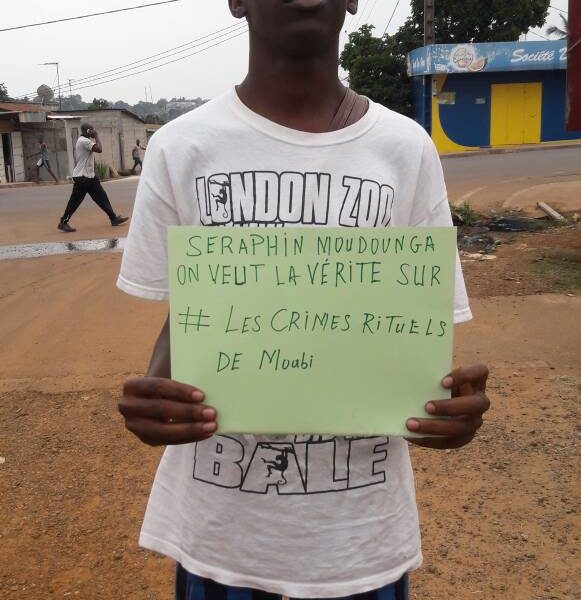 Société
LONDON ZOO
SERAPHIN MOUDOUNGA
ON VEUT LA VÉRITE SUR
# LES CRIMES RITUELS
DE Moabi
BALE